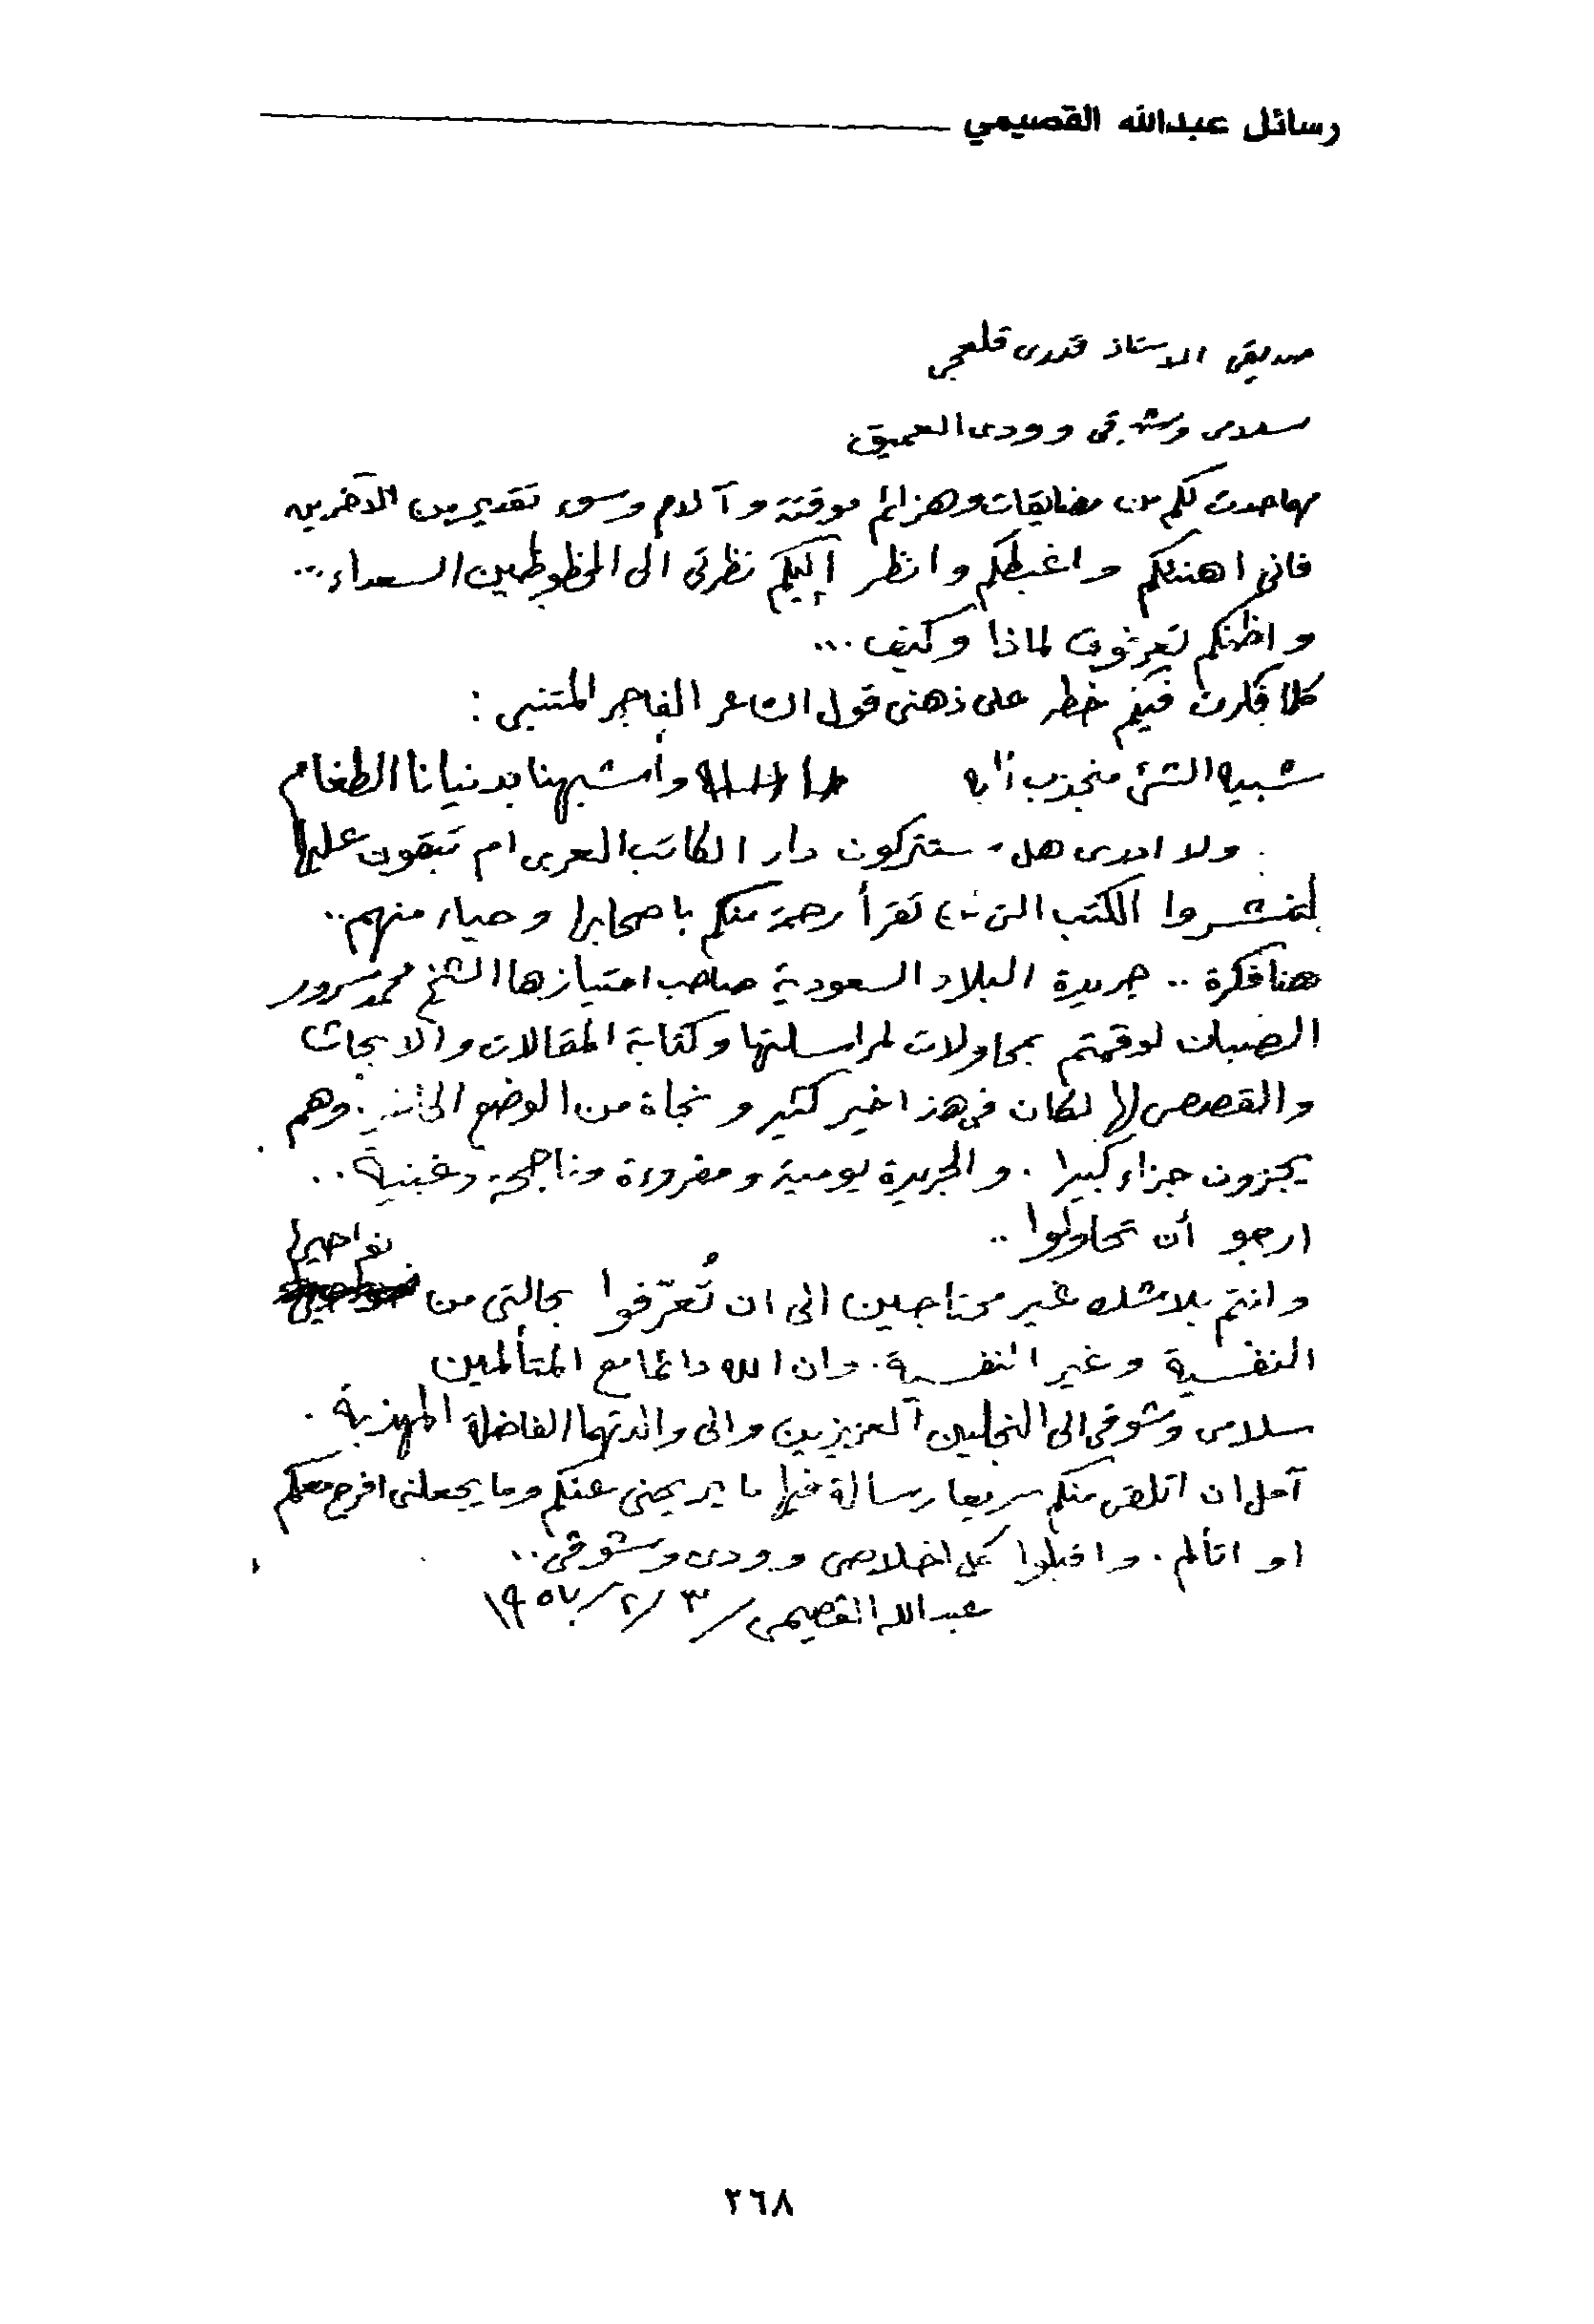 رسائل عبدالله القصيمي
صديقى الاستاذ قدرى قلعجى
سلامى وشوقى وودى العميق
مهما حدث لكم من مضايقات وهزائم موقتة وآلام وسوء تقدير من الآخرين
فانى اهنئكم واغبطكم وانظر إليكم نظرتى الى المحظوظين السعداء...
واظنكم تعرفون لماذا وكيف...
كلما فكرت فيكم خطر على ذهنى قول الشاعر الفاجر المتنبى :
شبيه الشئ منجذب اليه وأشبهنا بدنيانا الطغام
ولا ادرى هل ستتركون دار الكاتب العربى ام تبقون عليها
لتنشروا الكتب التى لا تقرأ رحمة منكم باصحابها وحياء منهم..
هنا فكرة .. جريدة البلاد السعودية صاحب امتيازها الشيخ محمد سرور
الصبان لو قمتم بمحاولات لمراسلتها وكتابة المقالات والابحاث
والقصص لها لكان فى هذا خير كثير ونجاة من الوضع . وهم
يجزون جزاء كبيرا . والجريدة يومية ومقروءة وناجحة وغنية..
ارجو أن تحاولوا ..
وانتم بلا شك غير محتاجين الى ان تُعرّفوا بحالتى من نواحيها
النفسية وغير النفسية. وان الله دائما مع المتألمين
سلامى وشوقى الى النجلين العزيزين والى والدتهما الفاضلة المهذبة .
آمل ان اتلقى منكم سريعا رسالة فيها ما يريحنى عنكم وما يجعلنى افرح معكم
او اتألم . واقبلوا كل اخلاصى وودى وشوقى..
عبد الله القصيمى / ٣ / ٢ / ١٩٥٧
٢٦٨